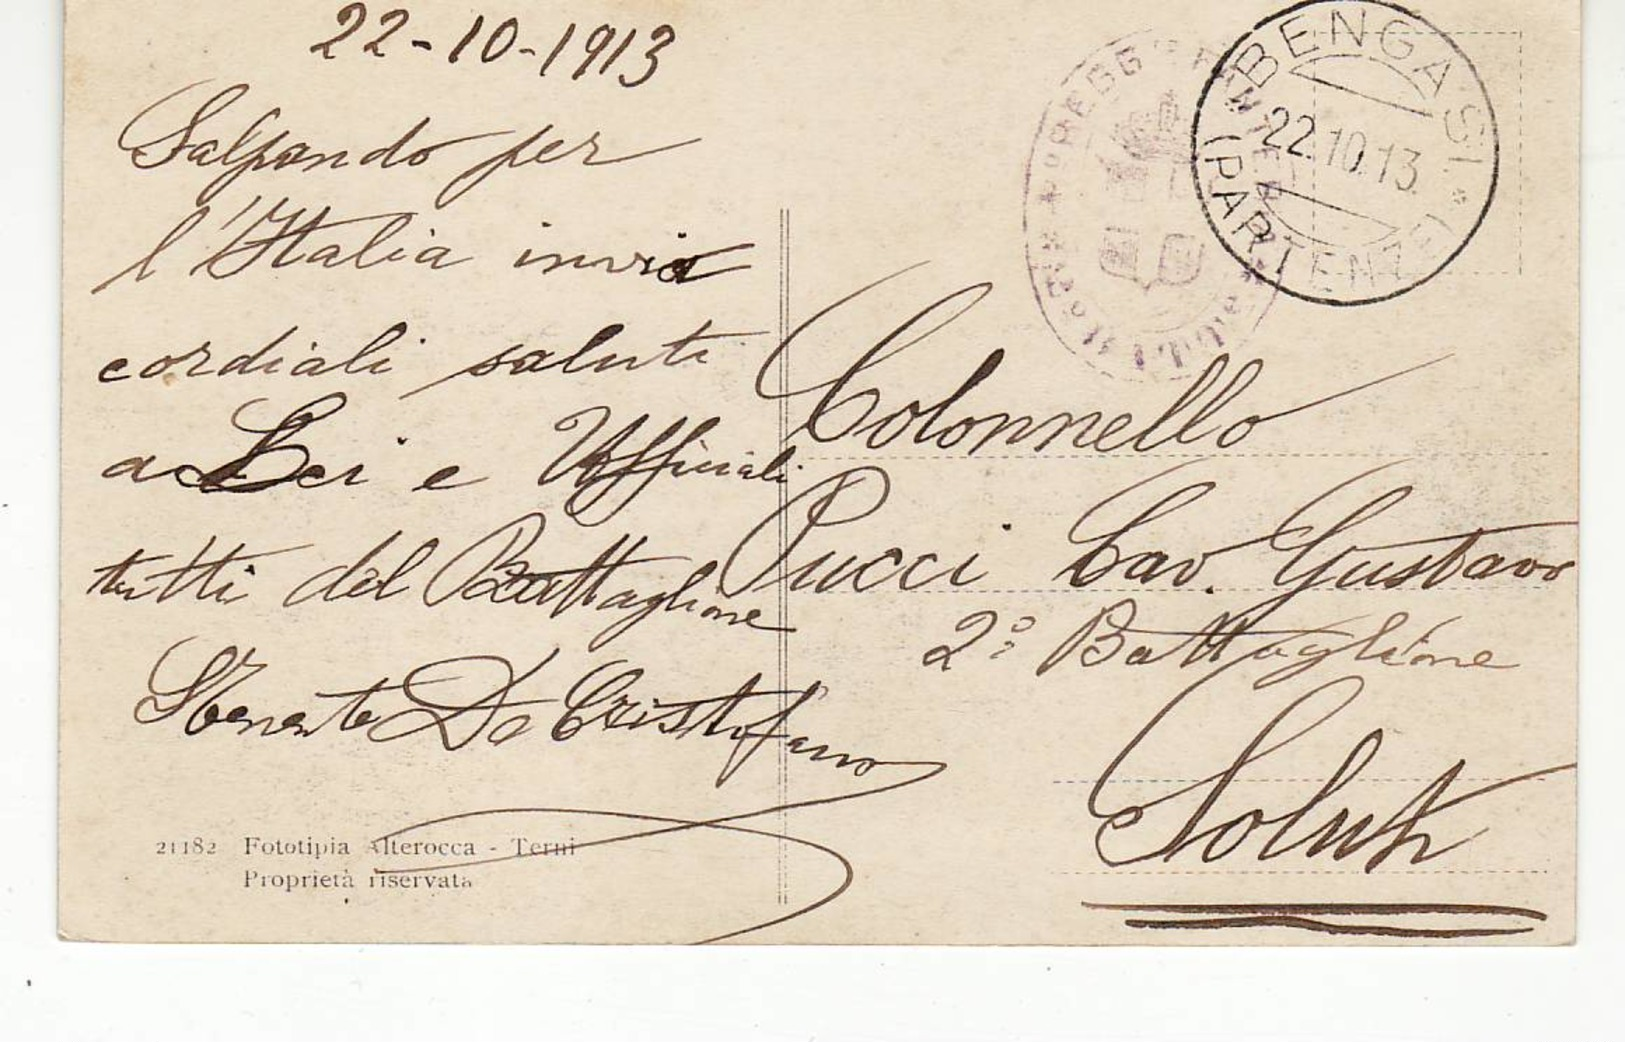 22-10-1913
Salpando per
l'Italia invio
cordiali saluti
a Lei e Ufficiali
tutti del Battaglione
Tenente De Cristofaro
21182 Fototipia Alterocca - Terni
Proprietà riservata
BENGASI
22.10.13
(PARTENZE)
REGG
Colonnello
Pucci Cav. Gustavo
2º Battaglione
Soluk